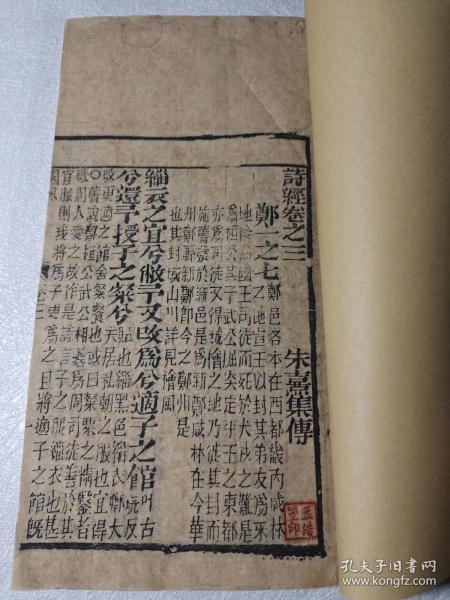 詩經卷之三
朱熹集傳
鄭一之七
鄭邑名本在西都畿內咸林
之地宣王以封其弟友爲采
地後爲幽王司徒而死於犬戎之難是
爲桓公其子武公掘突定平王之東都
亦爲司徒又得虢檜之地乃徙其封而
施舊號於新邑是爲新鄭咸林在今華
州鄭縣新鄭即今之鄭州是
也其封域山川詳見檜風
緇衣之宜兮敝予又改爲兮適子之館
叶古
玩反
兮還予授子之粲兮
賦也緇黑色緇衣卿大
夫居私朝之服也宜稱
改更適之館舍粲餐也或曰粲粟之精鑿者
○舊說鄭桓公武公相繼爲周司徒善於其
職周人愛之故作是詩言子之服緇衣也甚
宜敝則我將爲子更爲之且將適子之館旣
孔夫子旧书网
book.kongfz.com